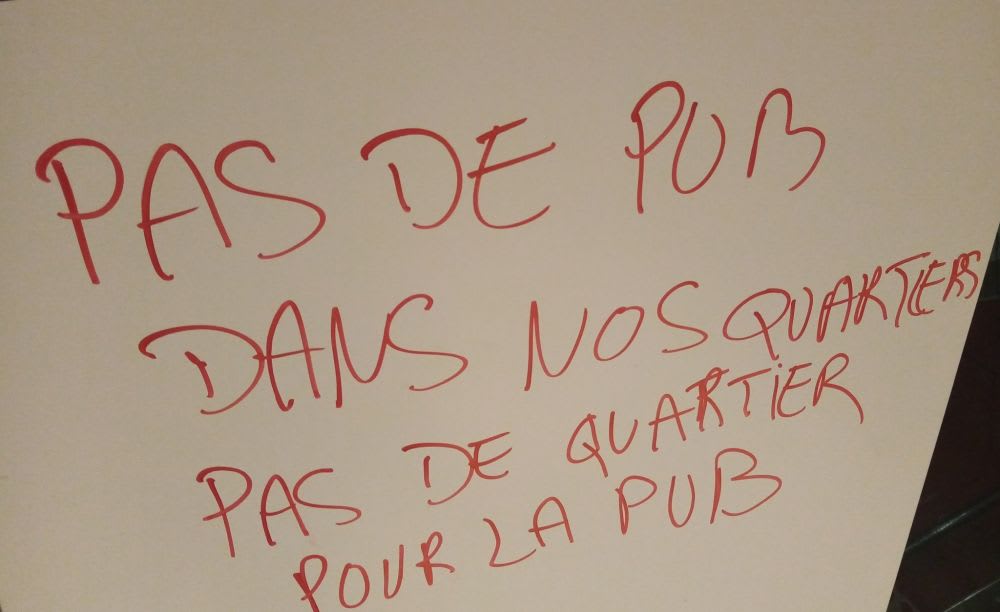 PAS DE PUB
DANS NOS QUARTIERS
PAS DE QUARTIER
POUR LA PUB